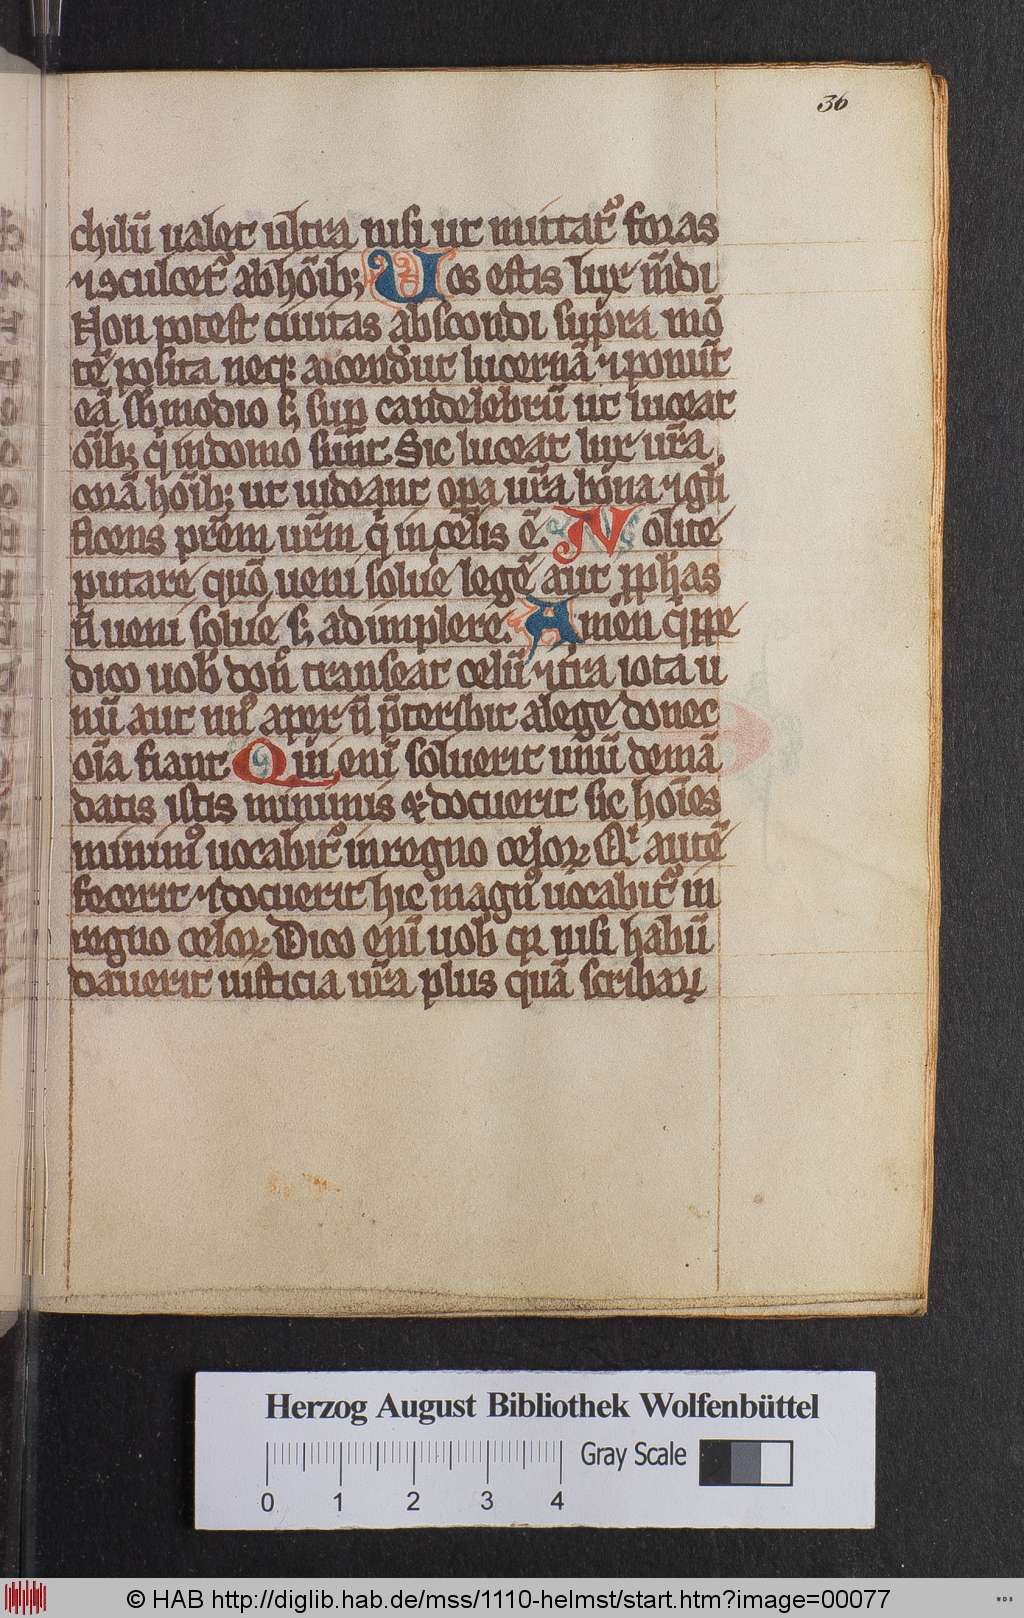 36
chilū ualet ultra nisi ut mittatꝰ foras
⁊ ꝯculcetꝰ ab hōib; Uos estis lux mūdi
Non potest ciuitas abscondi supra mō
tē posita neq; accendūt lucernā ⁊ ponūt
eā sb̄ modio s; sup̄ candelebrū ut luceat
oīb; q̄ in domo sunt. Sic luceat lux ur̄a
corā hōib; ut uideant op̄a ur̄a bona ⁊ gl̄i
ficens pr̄em ur̄m q̄ in celis ē. Nolite
putare quō ueni soluē legē aut ꝓph̄as
n̄ ueni soluē s; adimplere. Amen q̄ppe
dico uob̄ don̄ transeat celū ⁊ tr̄a iota u
nū aut unꝰ apex n̄ p̄teribit a lege donec
oīa fiant Qui enī soluerit unū de mā
datis istis minimis ⁊ docuerit sic hoīes
minimꝰ uocabitꝰ in regno celoꝝ Qī autē
fecerit ⁊ docuerit hic magnꝰ uocabitꝰ in
regno celoꝝ Dico enī uob̄ qꝛ nisi habū
dauerit iusticia ur̄a plus quā scribaꝝ
Herzog August Bibliothek Wolfenbüttel
Gray Scale
0 1 2 3 4
© HAB http://diglib.hab.de/mss/1110-helmst/start.htm?image=00077